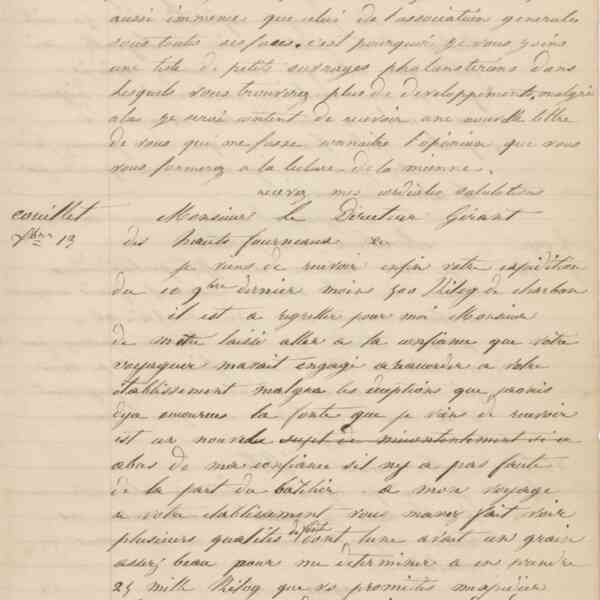 aussi immense que celui de l'association generale
sous toutes ses faces. c'est pourquoi je vous joins
une liste de petits ouvrages phalansteriens dans
lesquels vous trouverez plus de developpements, malgré
cela je serai content de recevoir une nouvelle lettre
de vous qui me fasse connaitre l'opinion que vous
vous formerez a la lecture de la mienne.
recevez mes cordiales salutations
couillet Monsieur le Directeur Gérant
xbre 13 des hauts fourneaux &c
je viens de recevoir enfin votre expedition
du 10 9bre dernier moins 500 Kilog de charbon
il est a regretter pour moi Monsieur
de m'etre laissé aller a la confiance que votre
voyageur m'avait engagé a accorder a votre
etablissement malgre les que j'avais
deja la fonte que je viens de recevoir
est un nouveau sujet de mecontentement si ce
abus de ma confiance s'il n'y a pas faute
de la part du batelier. a mon voyage
a votre etablissement vous m'avez fait voir
plusieurs qualités de font dont l'une avait un grain
assez beau pour me determiner a en prendre
25 mille Kilog que vs promites